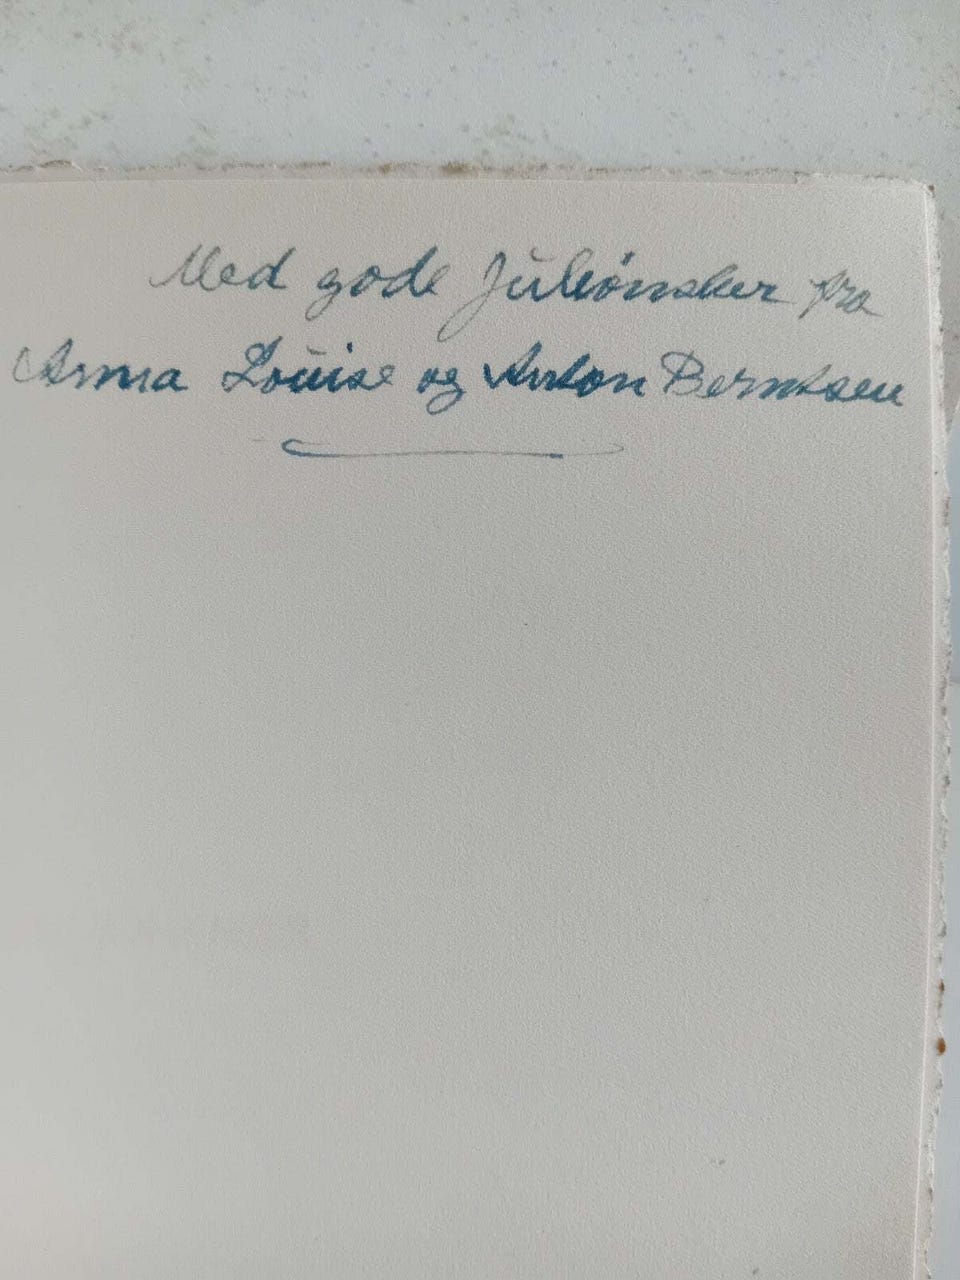 Med gode Juleønsker fra
Anna Louise og Anton Berntsen